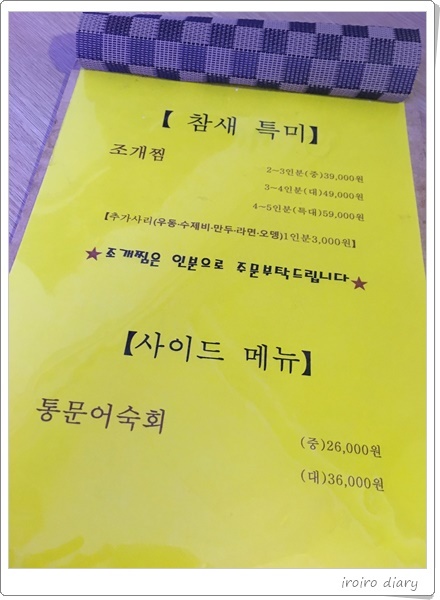 【 참새 특미】
조개찜
2~3인분(중)39,000원
3~4인분(대)49,000원
4~5인분(특대)59,000원
【추가사리(우동·수제비·만두·라면·오뎅)1인분3,000원】
★조개찜은 인분으로 주문부탁드립니다★
【사이드 메뉴】
통문어숙회
(중)26,000원
(대)36,000원
iroiro diary